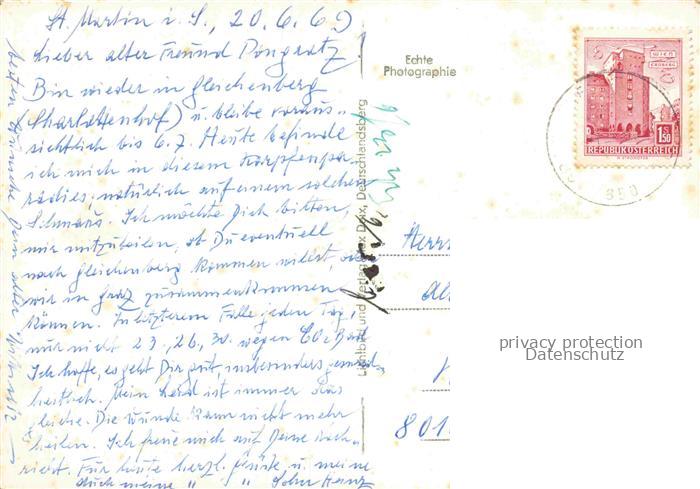 St. Martin i. S., 20.6.69
Lieber alter Freund Pongratz
Bin wieder in Gleichenberg
(Charlottenhof) u. bleibe voraus-
sichtlich bis 6.7. Heute befinde
ich mich in diesem Karpfenpa-
radies; natürlich auf einem solchen
Schmaus. Ich möchte Dich bitten,
mir mitzuteilen, ob Du eventuell
nach Gleichenberg kommen willst, od.
wir in Graz zusammenkommen
können. In letzterem Falle jeden Tag,
nur nicht 23., 26., 30. wegen CO2 Bad
Ich hoffe, es geht Dir gut, insbesonders gesund-
heitlich. Mein Leid ist immer das
gleiche. Die Wunde kann nicht mehr
heilen. Ich freue mich auf Deine Nach-
richt. Für heute herzl. Grüße u. meine
auch meine " " Hans
besten Wünsche Dein alter
Echte
Photographie
Lichtbild und Verlag Max Deix, Deutschlandsberg
WIEN
ERDBERG
1.50
REPUBLIK ÖSTERREICH
Herrn
801
privacy protection
Datenschutz